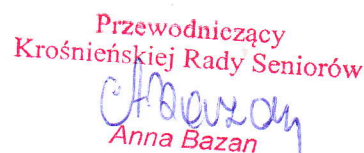 Przewodniczący
Krośnieńskiej Rady Seniorów
ABazan
Anna Bazan